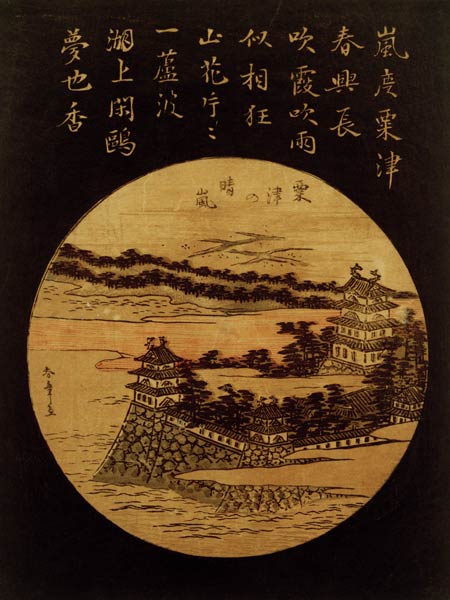 嵐度粟津
春興長
吹霞吹雨
似相狂
山花片〻
一蘆波
湖上閑鷗
夢也香
粟津の晴嵐
春章画